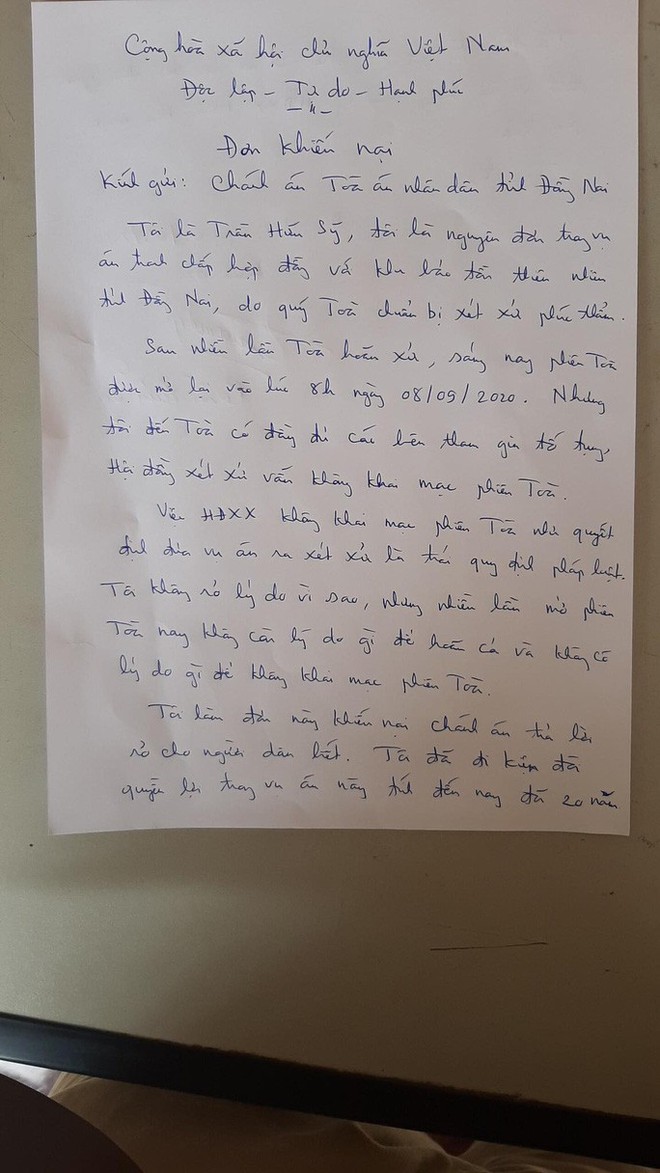 Cộng hòa xã hội chủ nghĩa Việt Nam
Độc lập - Tự do - Hạnh phúc
Đơn khiếu nại
Kính gửi: Chánh án Toà án nhân dân tỉnh Đồng Nai
Tôi là Trần Hữu Sỹ, tôi là nguyên đơn trong vụ
án tranh chấp hợp đồng với khu bảo tồn thiên nhiên
tỉnh Đồng Nai, do quý Toà chuẩn bị xét xử phúc thẩm.
Sau nhiều lần Toà hoãn xử, sáng nay phiên Toà
được mở lại vào lúc 8h ngày 08/09/2020. Nhưng
tôi đến Toà có đầy đủ các bên tham gia tố tụng,
Hội đồng xét xử vẫn không khai mạc phiên Toà.
Việc HĐXX không khai mạc phiên Toà như quyết
định đưa vụ án ra xét xử là trái quy định pháp luật.
Tôi không rỏ lý do vì sao, nhưng nhiều lần mở phiên
Toà nay không còn lý do gì để hoãn cả và không có
lý do gì để không khai mạc phiên Toà.
Tôi làm đơn này khiếu nại chánh án trả lời
rỏ cho người dân biết. Tôi đã đi kiện đòi
quyền lợi trong vụ án này tính đến nay đã 20 năm